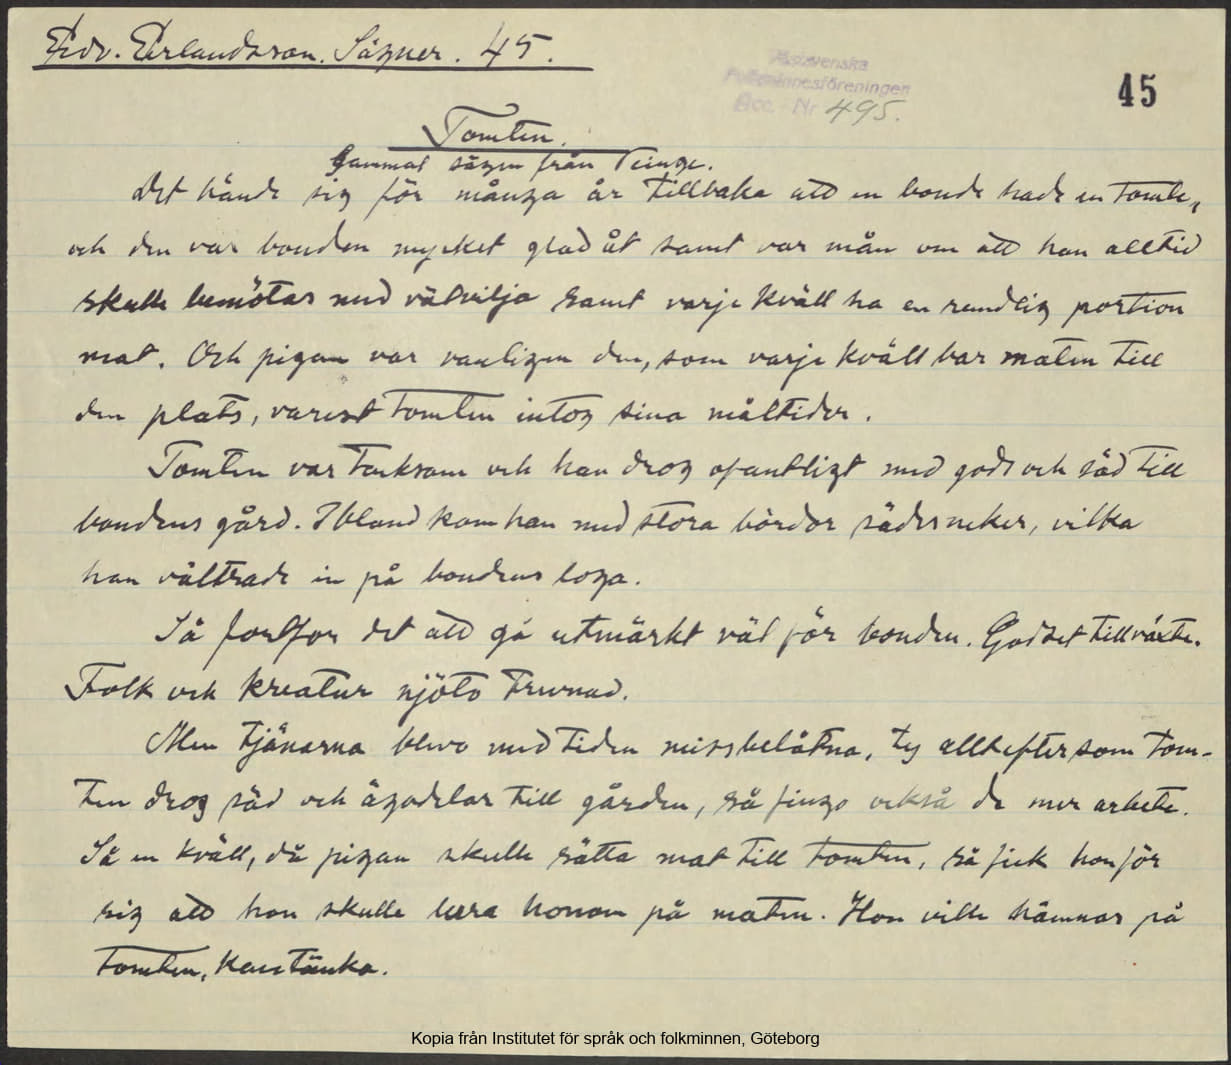 Edv. Erlandsson. Sägner. 45.
Västsvenska
Folkminnesföreningen
Acc. Nr 495.
45
Tomten.
Gammal sägen från Tvinge.
Det hände sig för många år tillbaka att en bonde hade en tomte,
och den var bonden mycket glad åt samt var mån om att han alltid
skulle bemötas med välvilja samt varje kväll ha en rundlig portion
mat. Och pigan var vanligen den, som varje kväll bar maten till
den plats, varest tomten intog sina måltider.
Tomten var tacksam och han drog ofantligt med gods och säd till
bondens gård. Ibland kom han med stora bördor sädesneker, vilka
han vältrade in på bondens loga.
Så fortfor det att gå utmärkt väl för bonden. Godset tillväxte.
Folk och kreatur njöto trevnad.
Men tjänarna blevo med tiden missbelåtna, ty allt eftersom tom-
ten drog säd och ägodelar till gården, så fingo också de mer arbete.
Så en kväll, då pigan skulle sätta mat till tomten, så fick hon för
sig att hon skulle lura honom på maten. Hon ville hämnas på
tomten, kan tänka.
Kopia från Institutet för språk och folkminnen, Göteborg